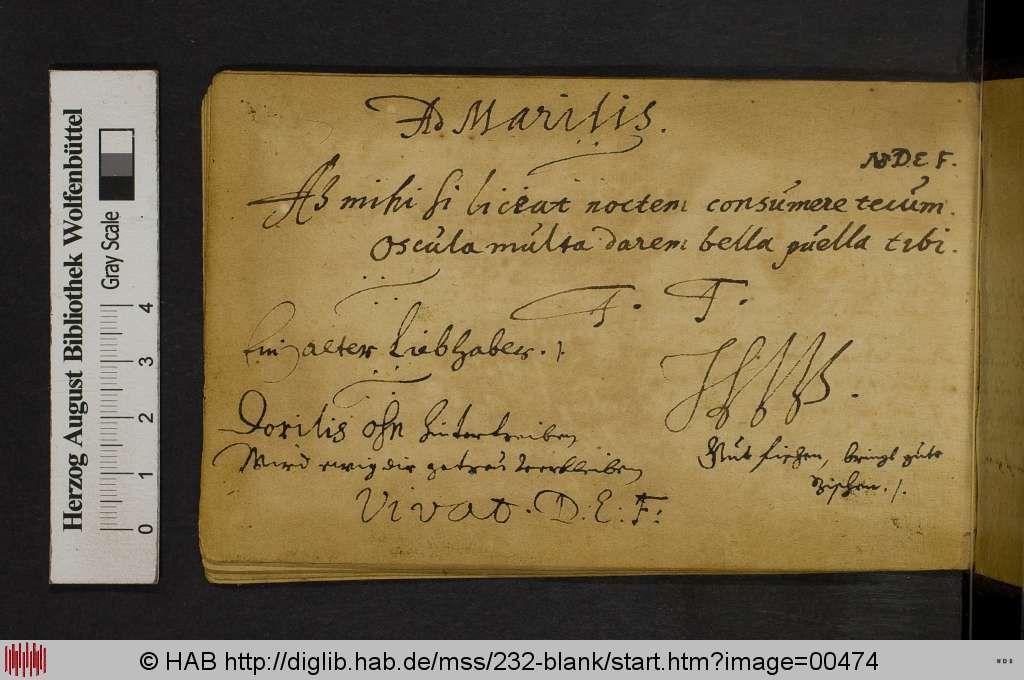 Ad Marilis.
NB D. E F.
Ah mihi si liceat noctem consumere tecum.
Oscula multa darem bella puella tibi.
F. F.
Ein alter Liebhaber. /.
Dorilis ohn hintertreiben
Wird ewig dir getreu verbleiben
Gut fischen, bringt gute
Vivat. D. E. F.
Herzog August Bibliothek Wolfenbüttel
Gray Scale
0 1 2 3 4
© HAB http://diglib.hab.de/mss/232-blank/start.htm?image=00474